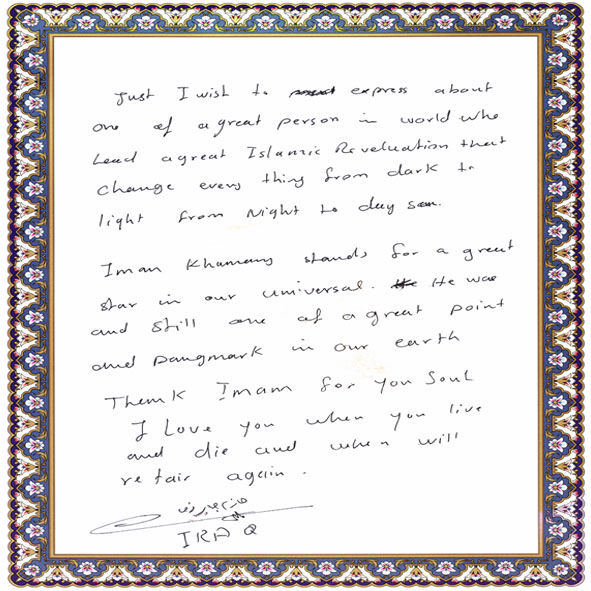 Just I wish to express about
one of a great person in world who
Lead a great Islamic Revoluation that
change every thing from dark to
light from Night to day
Imam Khamany stands for a great
star in our universal. He was
and still one of a great point
and Dangmark in our earth
Thenk Imam for you Soul
I Love you when you live
and die and when will
retair again.
IRAQ